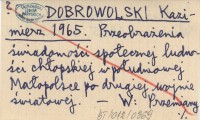 DOBROWOLSKI Kazi-
mierz 1965. Przeobrażenia
świadomości społecznej ludno-
ści chłopskiej w południowej
Małopolsce po drugiej wojnie
światowej. – W: Przemiany